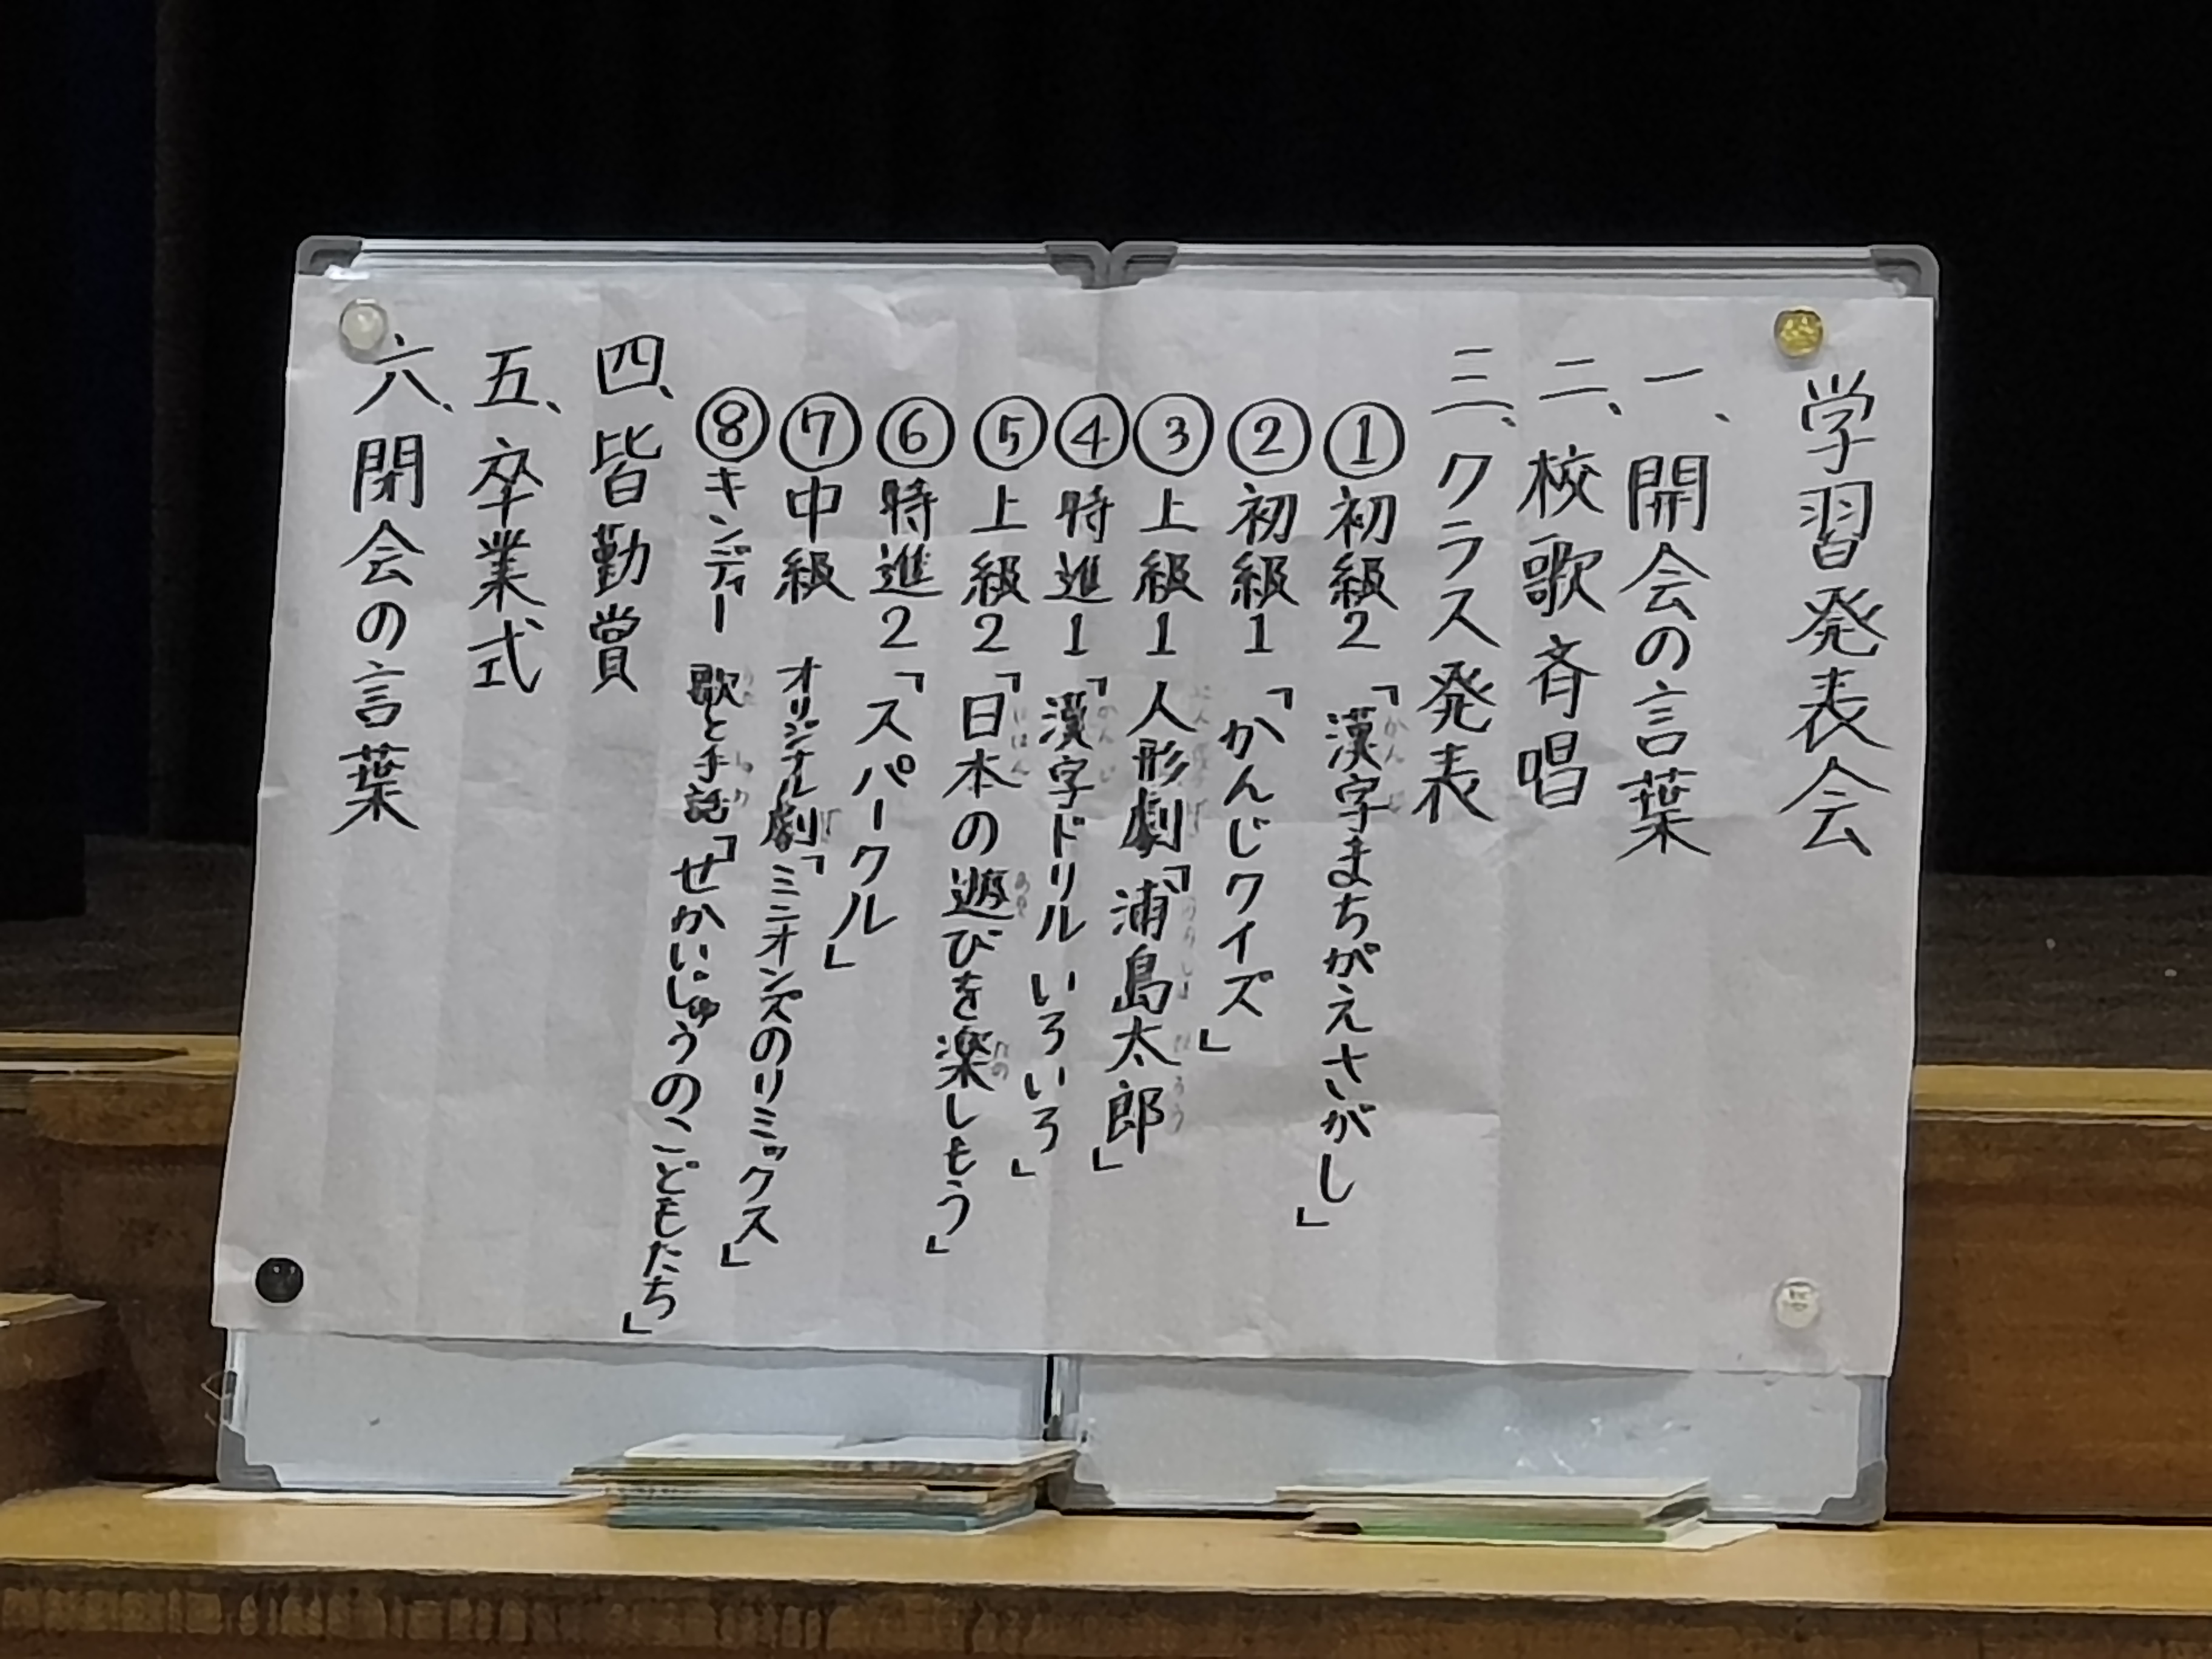 学習発表会
一、開会の言葉
二、校歌斉唱
三、クラス発表
①初級2「漢字まちがえさがし」
②初級1「かんじクイズ」
③上級1 人形劇「浦島太郎」
④特進1「漢字ドリル いろいろ」
⑤上級2「日本の遊びを楽しもう」
⑥特進2「スパークル」
⑦中級 オリジナル劇「ミニオンズのリミックス」
⑧キンディー 歌と手話「せかいじゅうのこどもたち」
四、皆勤賞
五、卒業式
六、閉会の言葉